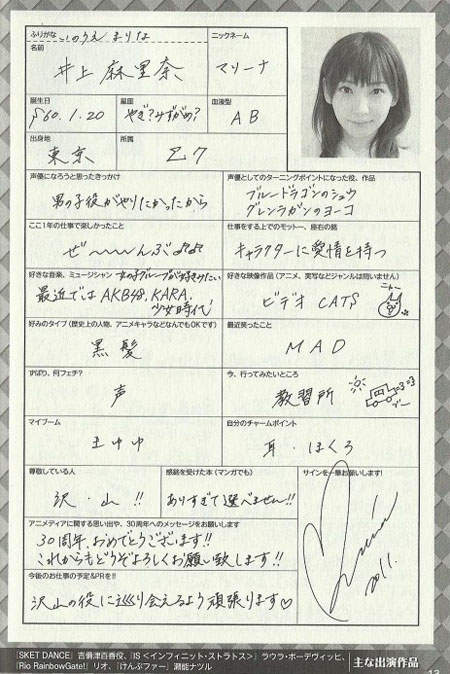 ふりがな
いのうえ まりな
ニックネーム
名前
井上麻里奈
マリーナ
誕生日
S60.1.20
星座
やぎ?みずがめ?
血液型
AB
出身地
東京
所属
乙ク
声優になろうと思ったきっかけ
男の子役がやりたかったから
声優としてのターニングポイントになった役、作品
ブルードラゴンのシュウ
グレンラガンのヨーコ
ここ1年の仕事で楽しかったこと
ぜ〜〜んぶ♪♪
仕事をする上でのモットー、座右の銘
キャラクターに愛情を持つ
好きな音楽、ミュージシャン
女の子グループが好きみたい
最近ではAKB48,KARA,
少女時代
好きな映像作品(アニメ、実写などジャンルは問いません)
ビデオ CATS
好みのタイプ(歴史上の人物、アニメキャラなどなんでもOKです)
黒髪
最近笑ったこと
MAD
ずばり、何フェチ?
声
今、行ってみたいところ
教習所
マイブーム
自分のチャームポイント
耳・ほくろ
尊敬している人
沢・山!!
感銘を受けた本(マンガでも)
ありすぎて選べません!!
サインを一筆お願いします!
2011.
アニメディアに関する思い出や、30周年へのメッセージをお願いします
30周年、おめでとうございます!!
これからもどうぞよろしくお願い致します!!
今後のお仕事の予定&PRを!!
沢山の役に巡り会えるよう頑張ります♡
『SKET DANCE』吉備津百香役、『IS<インフィニット・ストラトス>』ラウラ・ボーデヴィッヒ、
『Rio RainbowGate!』リオ、『けんぷファー』瀬能ナツル
主な出演作品